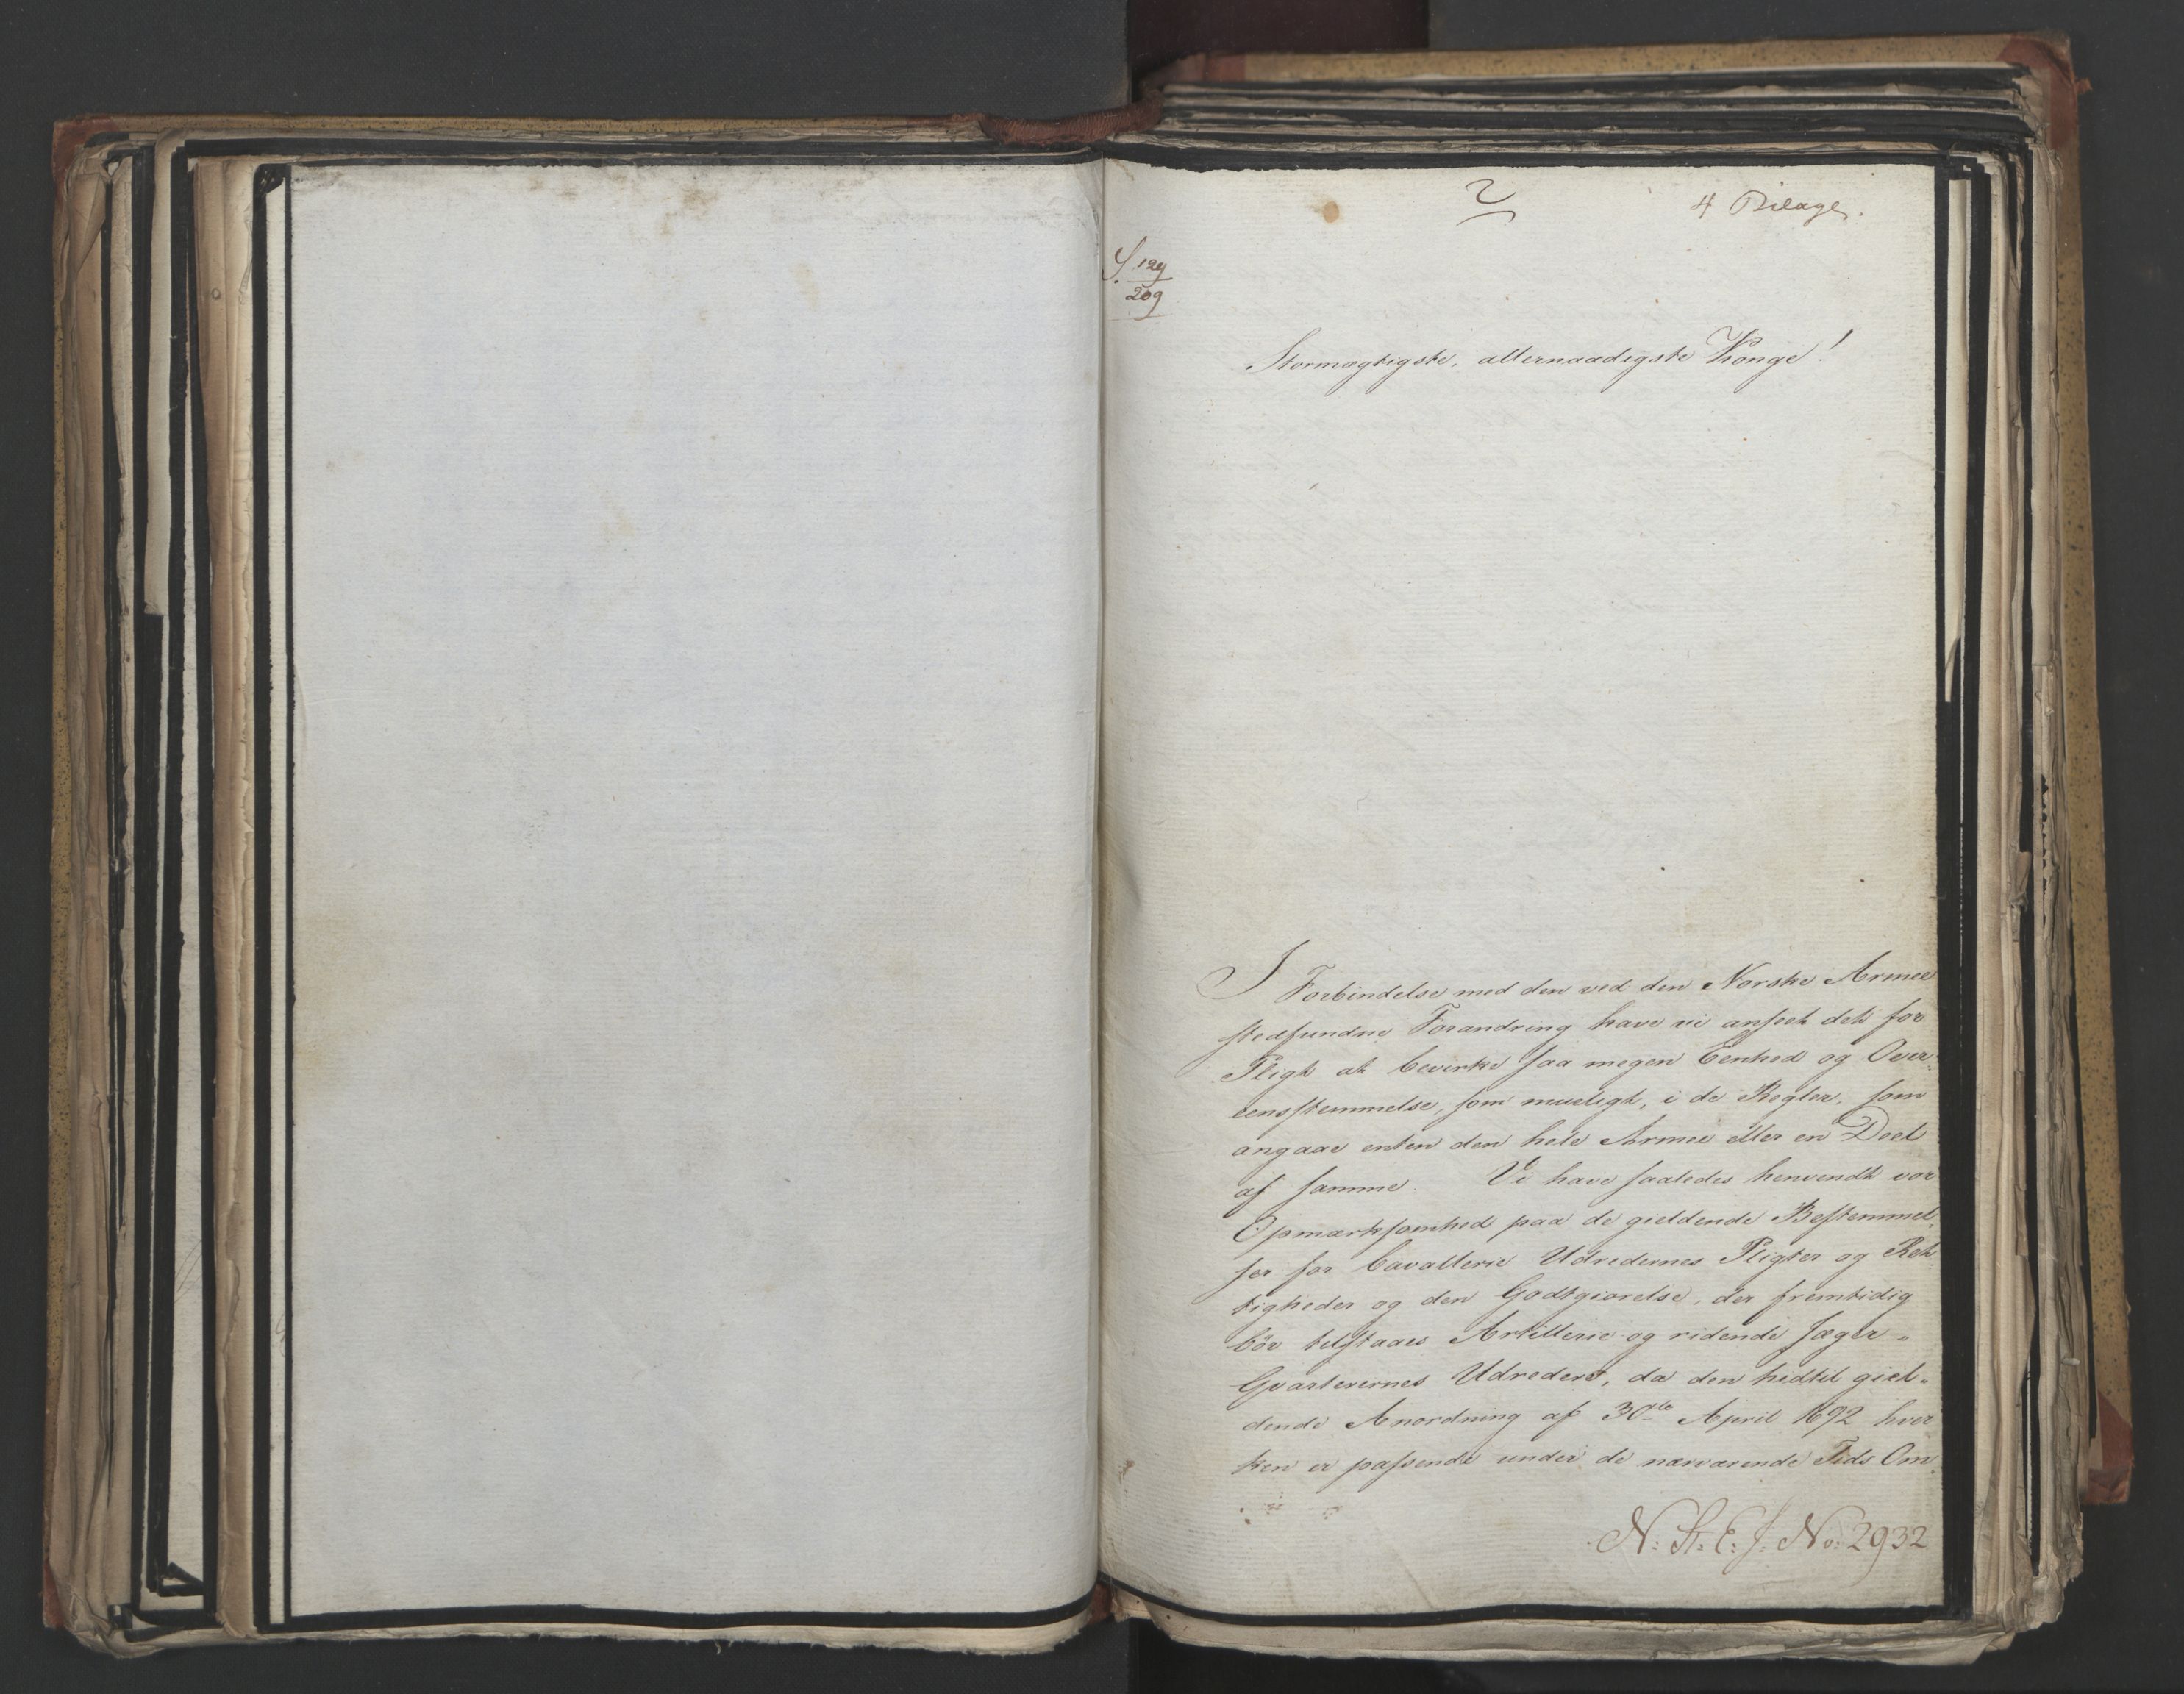 2
4 Bilage.
S. 129
209
Stormægtigste, allernaadigste Konge!
I Forbindelse med den ved den Norske Armee
stedfundne Forandring have vi anseet det for
Pligt at bevirke saa megen Eenhed og Over
eensstemmelse, som mueligt, i de Regler, som
angaae enten den hele Armee eller en Deel
af samme. Vi have saaledes henvendt vor
Opmærksomhed paa de gieldende Bestemmel,
ser for Cavallerie Udredernes Pligter og Ret,
tigheder og den Godtgiørelse, der fremtidig
bör tilstaaes Artillerie og ridende Jæger-
Qvarterernes Udredere, da den hidtil giel-
dende Anordning af 30te April 1692 hver
ken er passende under de nærværende Tids Om
N: St: E: J: No: 2932